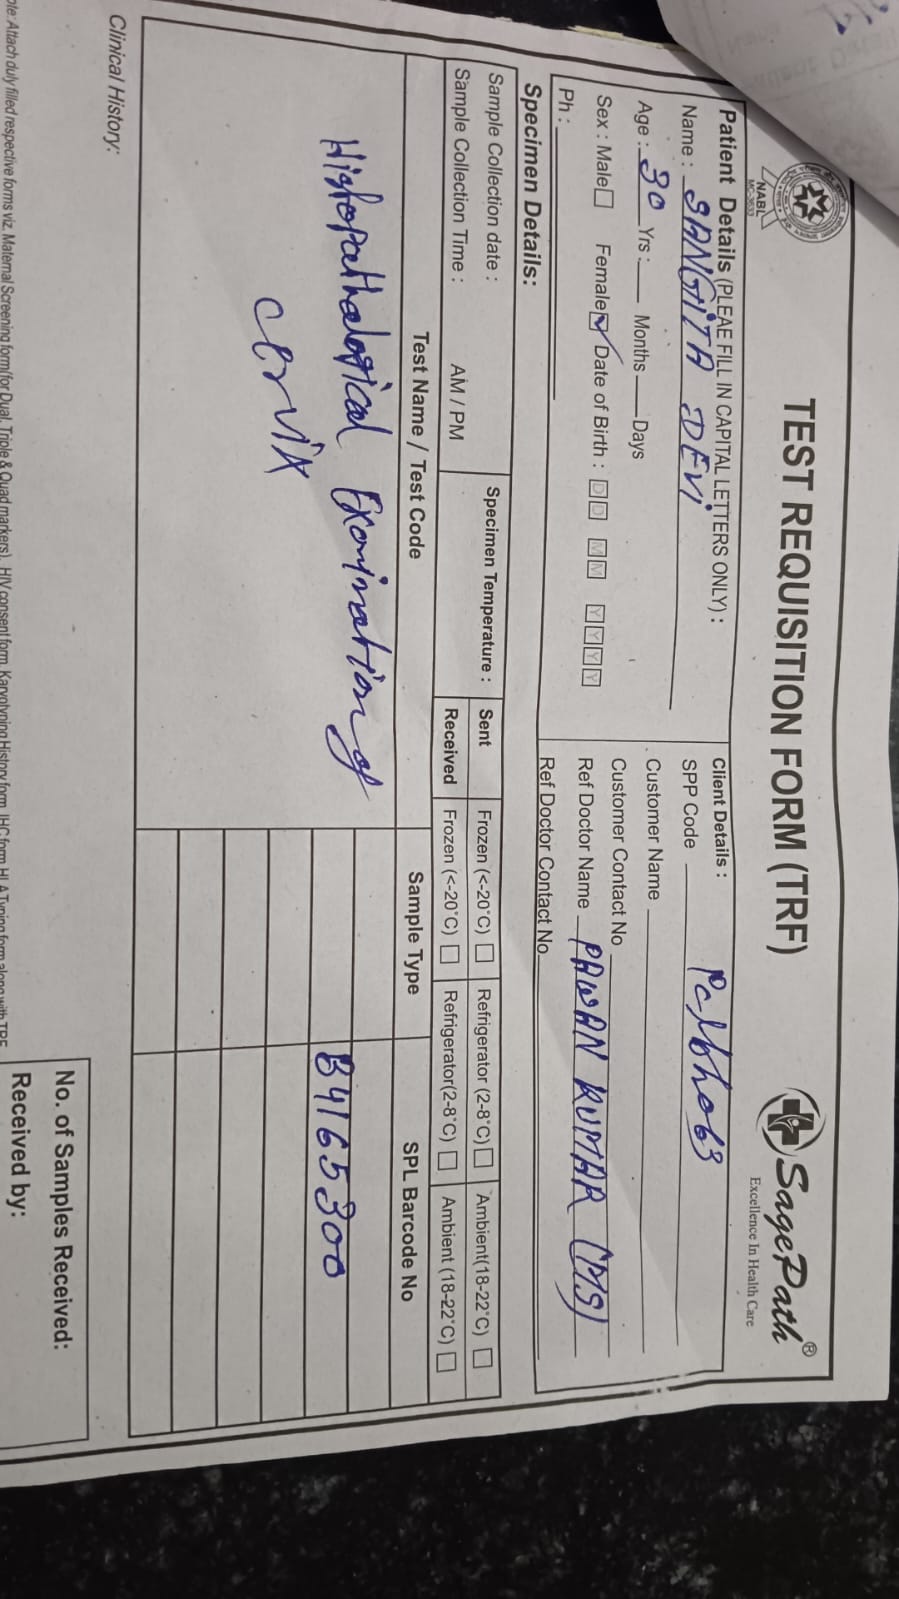 TEST REQUISITION FORM (TRF)
NABL
MC-3633
SagePath®
Excellence In Health Care
Patient Details (PLEAE FILL IN CAPITAL LETTERS ONLY) :
Name : SANGITA DEVI
Age : 30 Yrs : Months Days
Sex : Male Female Date of Birth : D D M M Y Y Y Y
Ph :
Client Details :
SPP Code
Customer Name
Customer Contact No
Ref Doctor Name PAWAN KUMAR (MS)
Ref Doctor Contact No
Specimen Details:
Sample Collection date :
Sample Collection Time : AM / PM
Specimen Temperature :
Sent Frozen (<-20°C) Refrigerator (2-8°C) Ambient(18-22°C)
Received Frozen (<-20°C) Refrigerator(2-8°C) Ambient (18-22°C)
Test Name / Test Code Sample Type SPL Barcode No
Histopathological Examination of B4165300
cervix
Clinical History:
Attach duly filled respective forms viz. Maternal Screening form (for Dual, Triple & Quad markers), HIV consent form, Karyotyping History form, IHC form, HLA Typing form along with TRF
No. of Samples Received:
Received by: